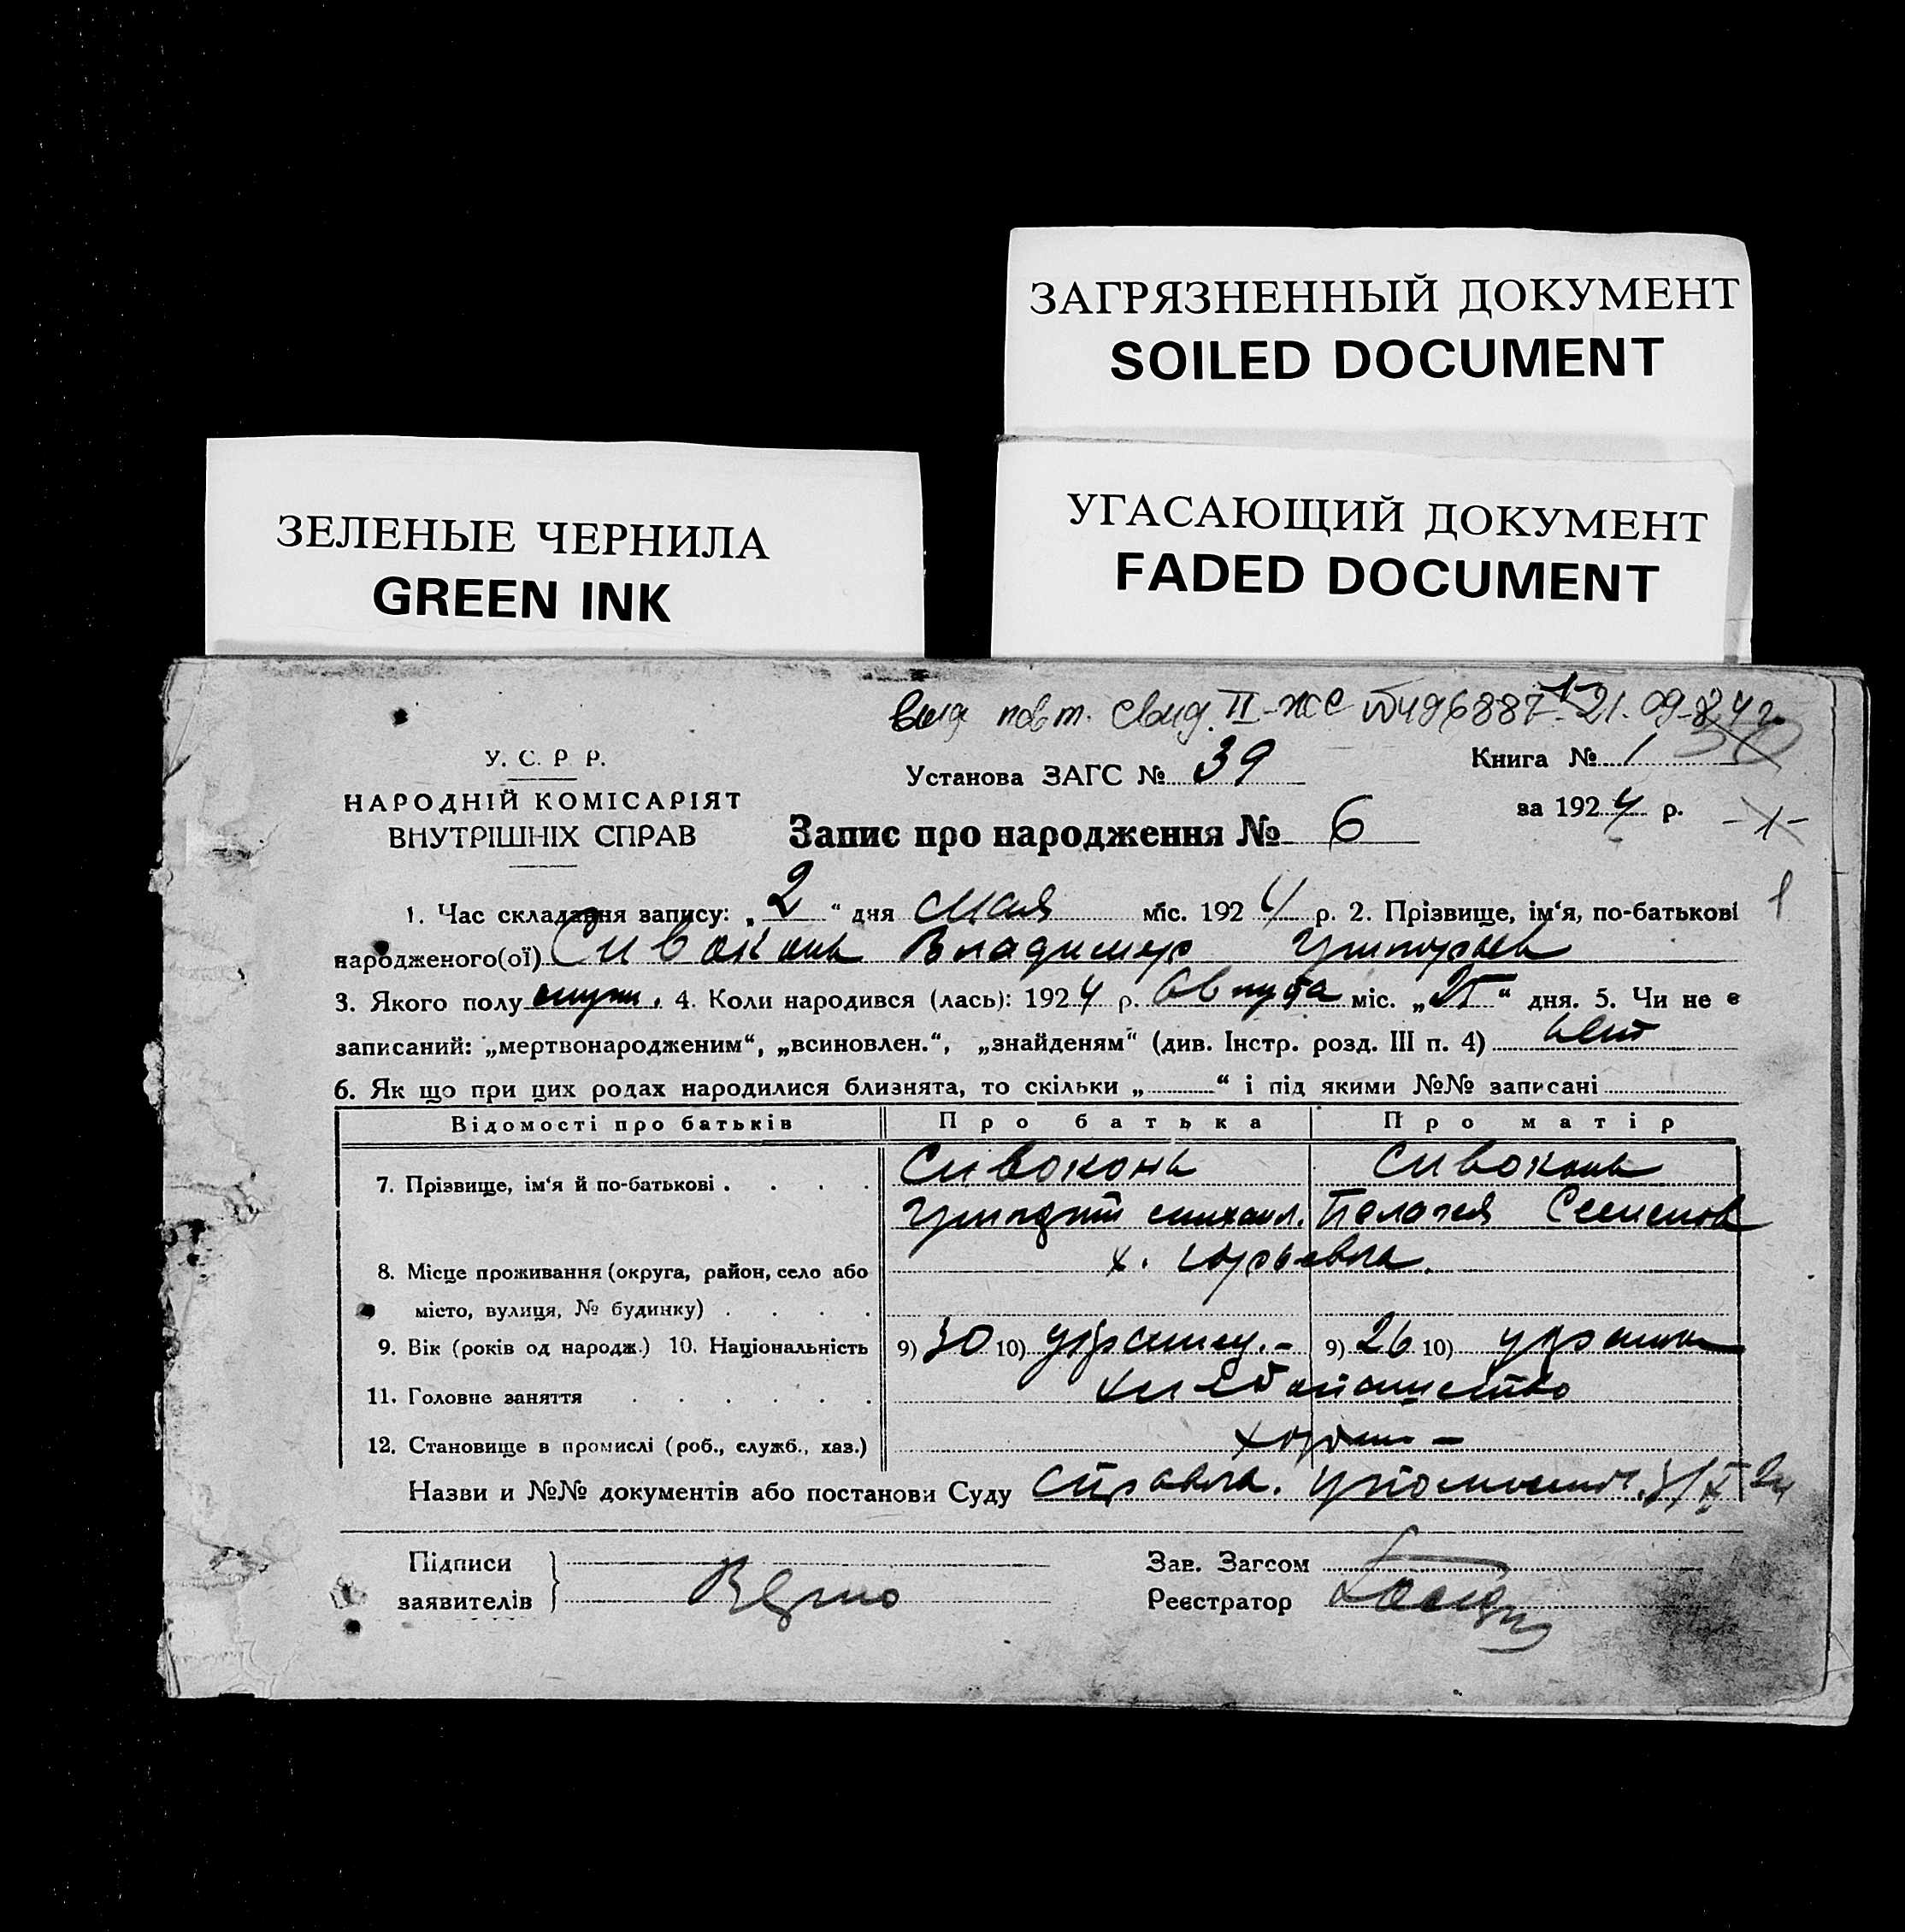 ЗАГРЯЗНЕННЫЙ ДОКУМЕНТ
SOILED DOCUMENT
ЗЕЛЕНЫЕ ЧЕРНИЛА
GREEN INK
УГАСАЮЩИЙ ДОКУМЕНТ
FADED DOCUMENT
повт. свид. II-ЖС №496887 21.09.84г.
У. С. Р Р.
НАРОДНІЙ КОМІСАРІЯТ
ВНУТРІШНІХ СПРАВ
Установа ЗАГС № 39
Книга № 1
за 1924 р.
Запис про народження № 6
1. Час складання запису: „2“ дня мая міс. 1924 р. 2. Прізвище, ім‘я, по-батькові
народженого(ої) Сивоконь Владимир Григорьев
3. Якого полу мужч. 4. Коли народився (лась): 1924 р. Августа міс. „ “ дня. 5. Чи не є
записаний: „мертвонародженим“, „всиновлен.“, „знайденям“ (див. Інстр. розд. III п. 4) нет
6. Як що при цих родах народилися близнята, то скільки „ “ і під якими №№ записані
Відомості про батьків Про батька Про матір
7. Прізвище, ім‘я й по-батькові Сивоконь Сивоконь
Григорий Михаил. Пелагея Семенов
8. Місце проживання (округа, район, село або х. Юрьевка.
місто, вулиця, № будинку)
9. Вік (років од народж.) 10. Національність 9) 30 10) украинец. 9) 26 10) украинка
11. Головне заняття хлебопашество
12. Становище в промислі (роб., служб., хаз.)
Назви и №№ документів або постанови Суду справка.
Підписи
заявителів
Зав. Загсом
Реєстратор